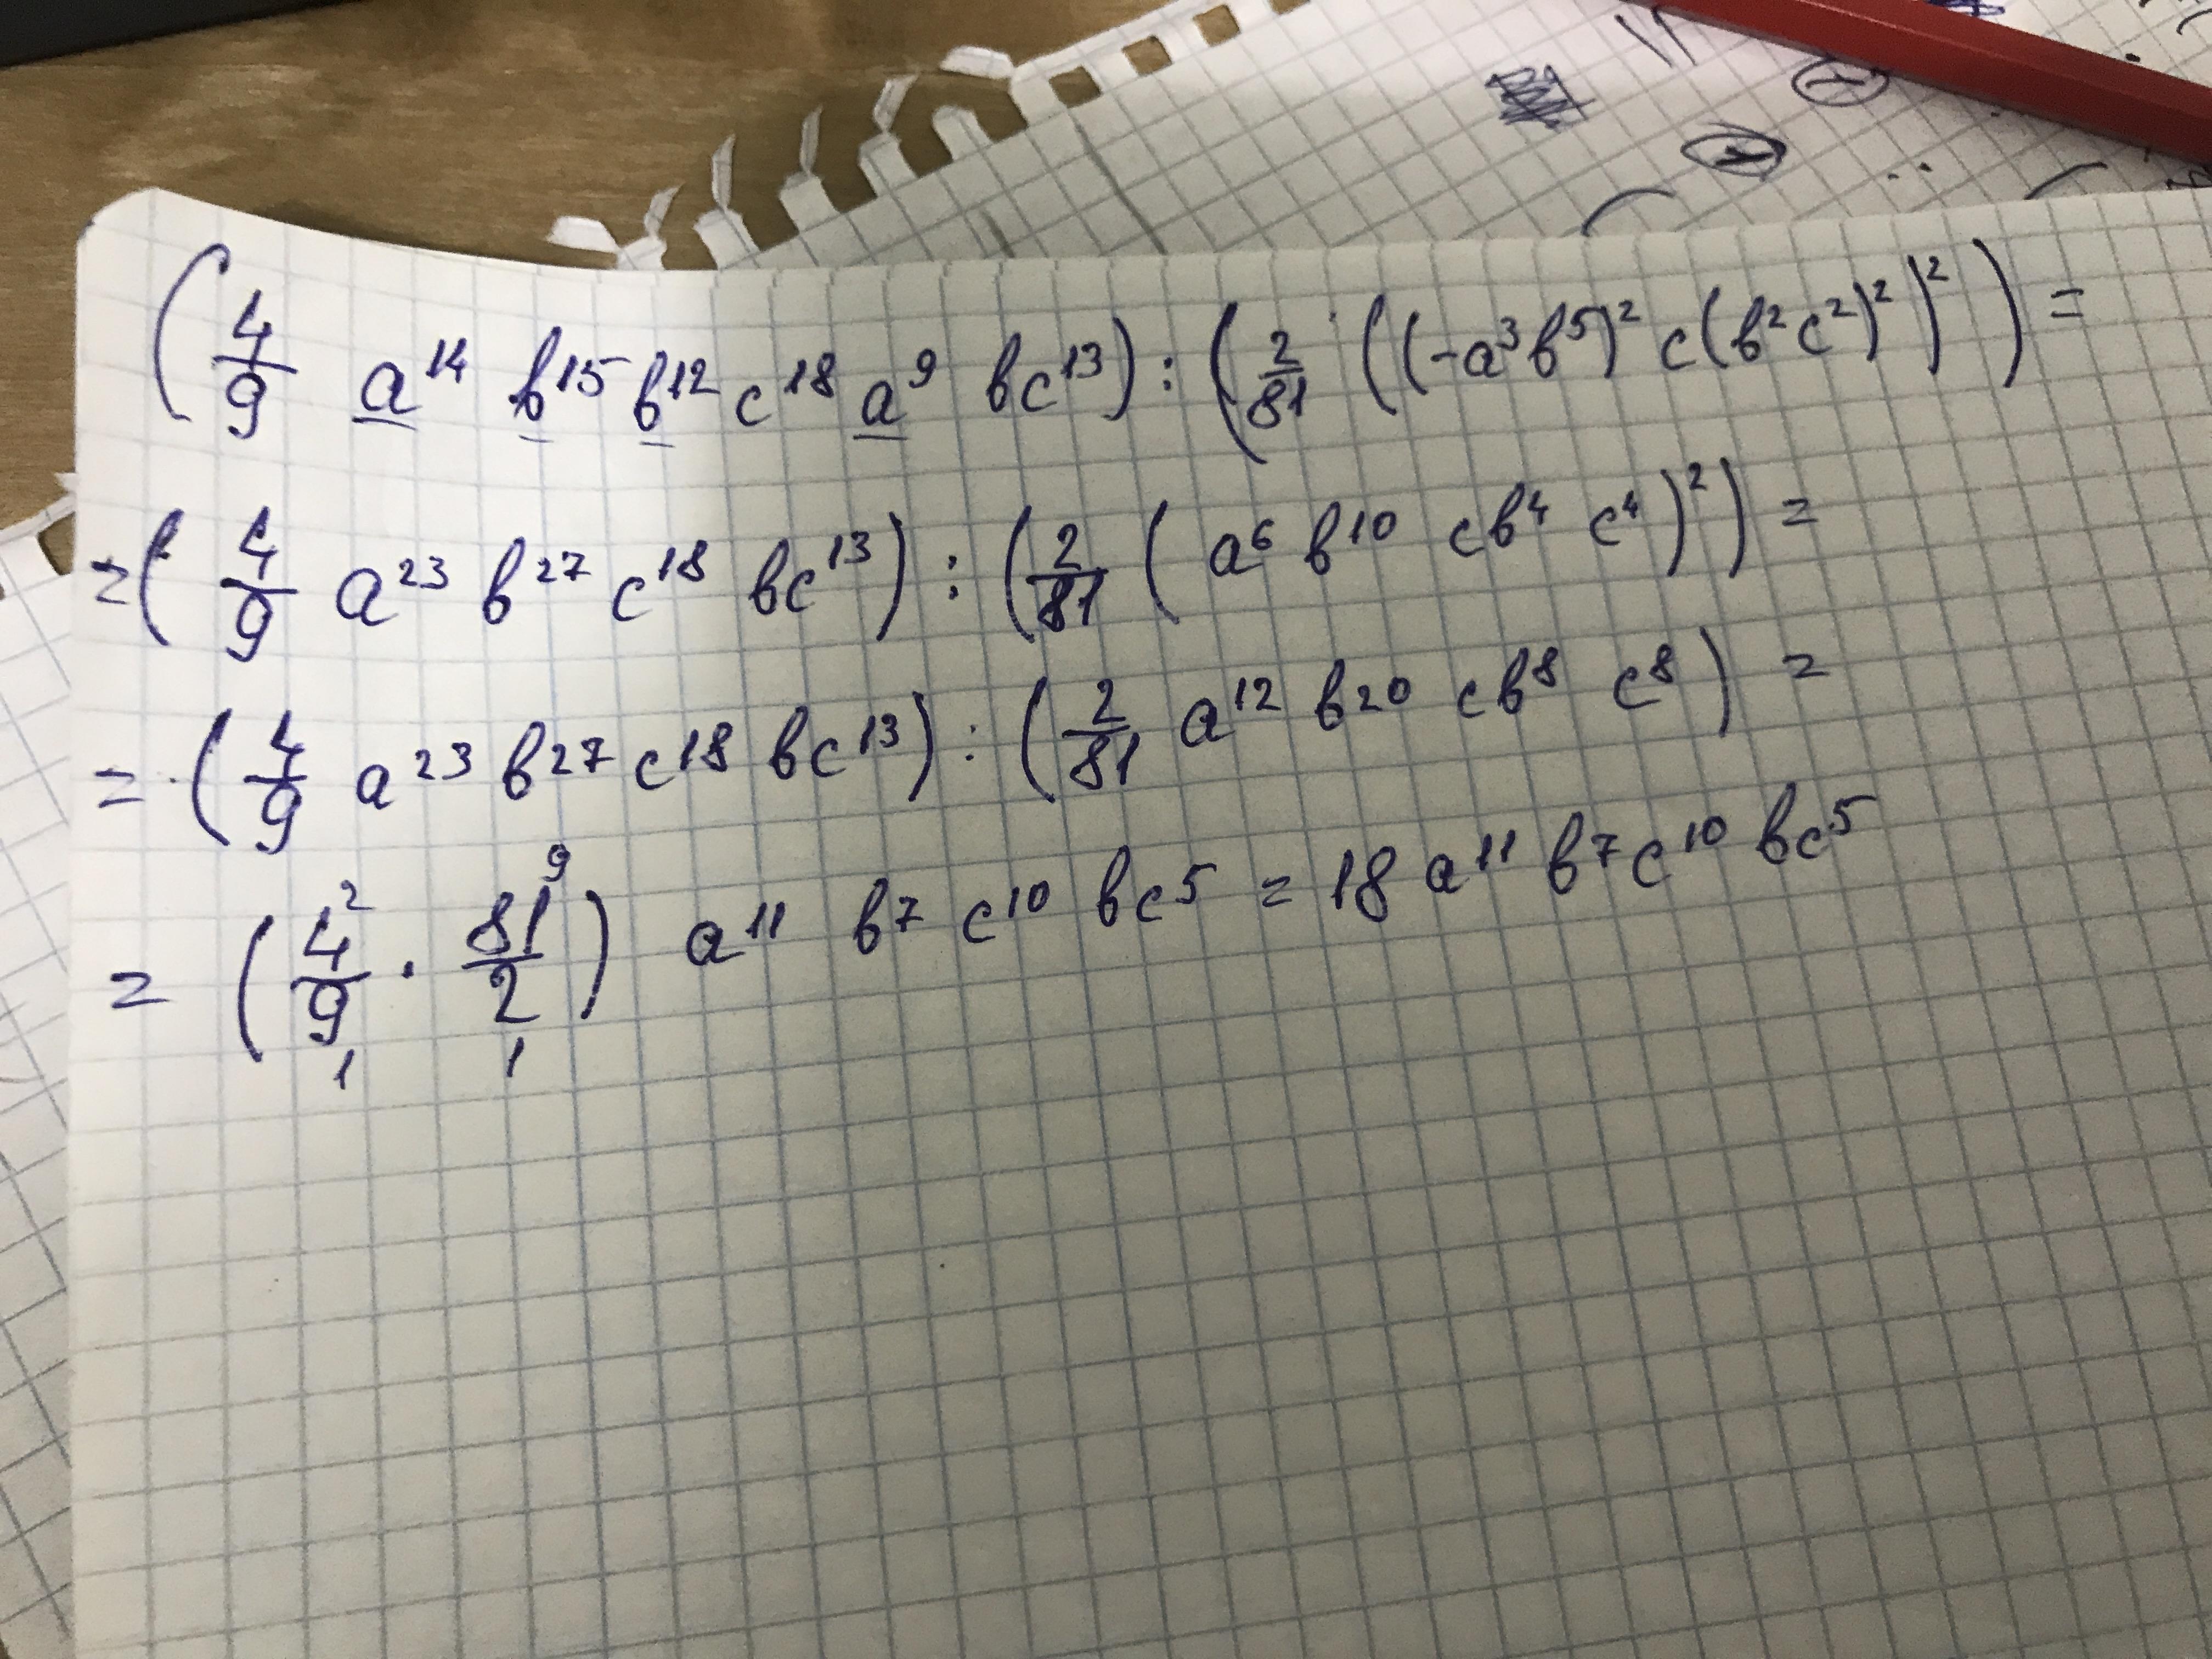 (4/9 a¹⁴ b¹⁵ b¹² c¹⁸ a⁹ bc¹³) : (2/81 ((-a³b⁵)² c(b²c²)²)²) =
= (4/9 a²³ b²⁷ c¹⁸ bc¹³) : (2/81 (a⁶ b¹⁰ cb⁴ c⁴)²) =
= (4/9 a²³ b²⁷ c¹⁸ bc¹³) : (2/81 a¹² b²⁰ cb⁸ c⁸) =
2 9
= (4/9 · 81/2) a¹¹ b⁷ c¹⁰ bc⁵ = 18 a¹¹ b⁷ c¹⁰ bc⁵
1 1